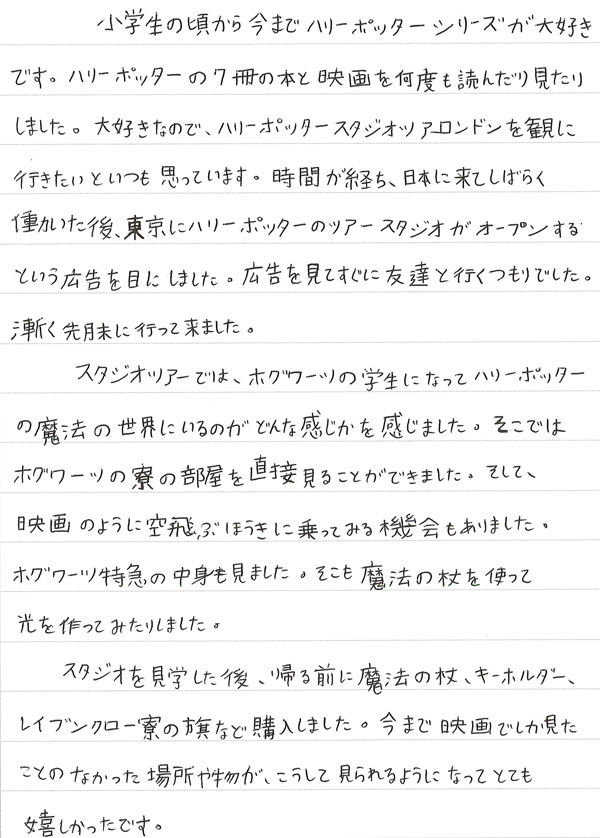 小学生の頃から今までハリーポッターシリーズが大好き
です。ハリーポッターの7冊の本と映画を何度も読んだり見たり
しました。大好きなので、ハリーポッタースタジオツアーロンドンを観に
行きたいといつも思っています。時間が経ち、日本に来てしばらく
働いた後、東京にハリーポッターのツアースタジオがオープンする
という広告を目にしました。広告を見てすぐに友達と行くつもりでした。
漸く先月末に行って来ました。
スタジオツアーでは、ホグワーツの学生になってハリーポッター
の魔法の世界にいるのがどんな感じかを感じました。そこでは
ホグワーツの寮の部屋を直接見ることができました。そして、
映画のように空飛ぶほうきに乗ってみる機会もありました。
ホグワーツ特急の中身も見ました。そこも魔法の杖を使って
光を作ってみたりしました。
スタジオを見学した後、帰る前に魔法の杖、キーホルダー、
レイブンクロー寮の旗など購入しました。今まで映画でしか見た
ことのなかった場所や物が、こうして見られるようになってとても
嬉しかったです。